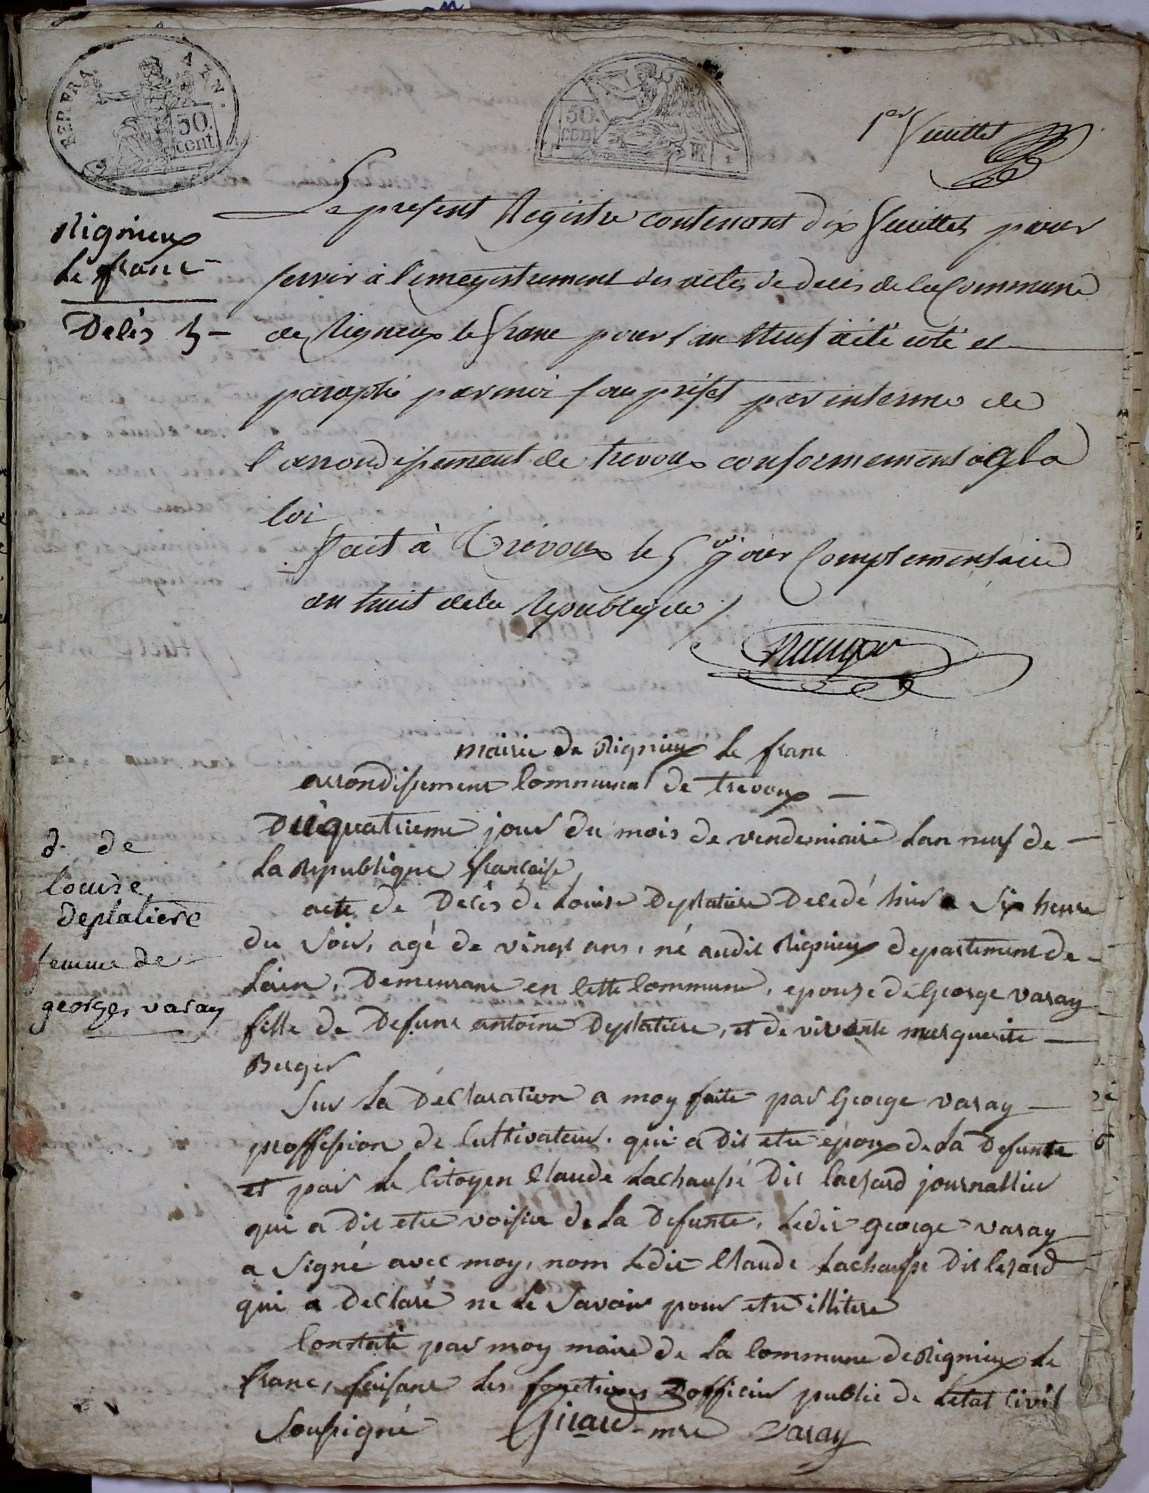 REP. FRA. ANN.
50 cent.
50 cent
1er feuillet
Rignieux
le franc
Decès
Le present Registre contenant dix feuillets pour
servir à l'enregistrement des actes de decès de la Commune
de Rigneux le franc pour l'an Neuf a été coté et
paraphé par moi sous préfet par interim de
l'arrondissement de trevoux conformement a la
loi
fait à Trevoux le 5e jour Complementaire
an huit de la Republique
mairie de Rignieux le franc
arrondissement Communal de trevoux
Du quatrieme jour du mois de vendemiaire Lan neuf de
La Republique francaise
d. de
Louise
deplatiere
femme de
george varay
acte de Decès de Louise Deplatiere Decedé hier a Six heure
du Soir, agé de vingt ans, né audit Rignieux departement de
Lain, Demeurant en Cette Commune, epouze de George varay
fille de Defunt antoine Deplatiere, et de vivante marguerite
Berger
Sur La Déclaration a moy faite par George varay
proffession de Cultivateur. qui a Dit etre epoux de La Defunte
et par Le Citoyen Claude Lachausse Dit Lachard journallier
qui a Dit etre voisin de La Defunte, Ledit george varay
a Signé avec moy, nom Ledit Claude Lachausse Dit Lesard
qui a Declaré ne Le Savoir pour etre illitere
Constaté par moy maire de La Commune de Rignieux Le
franc, faisant Les fonctions Dofficier public de Letat Civil
Soussigné Girard mre varay